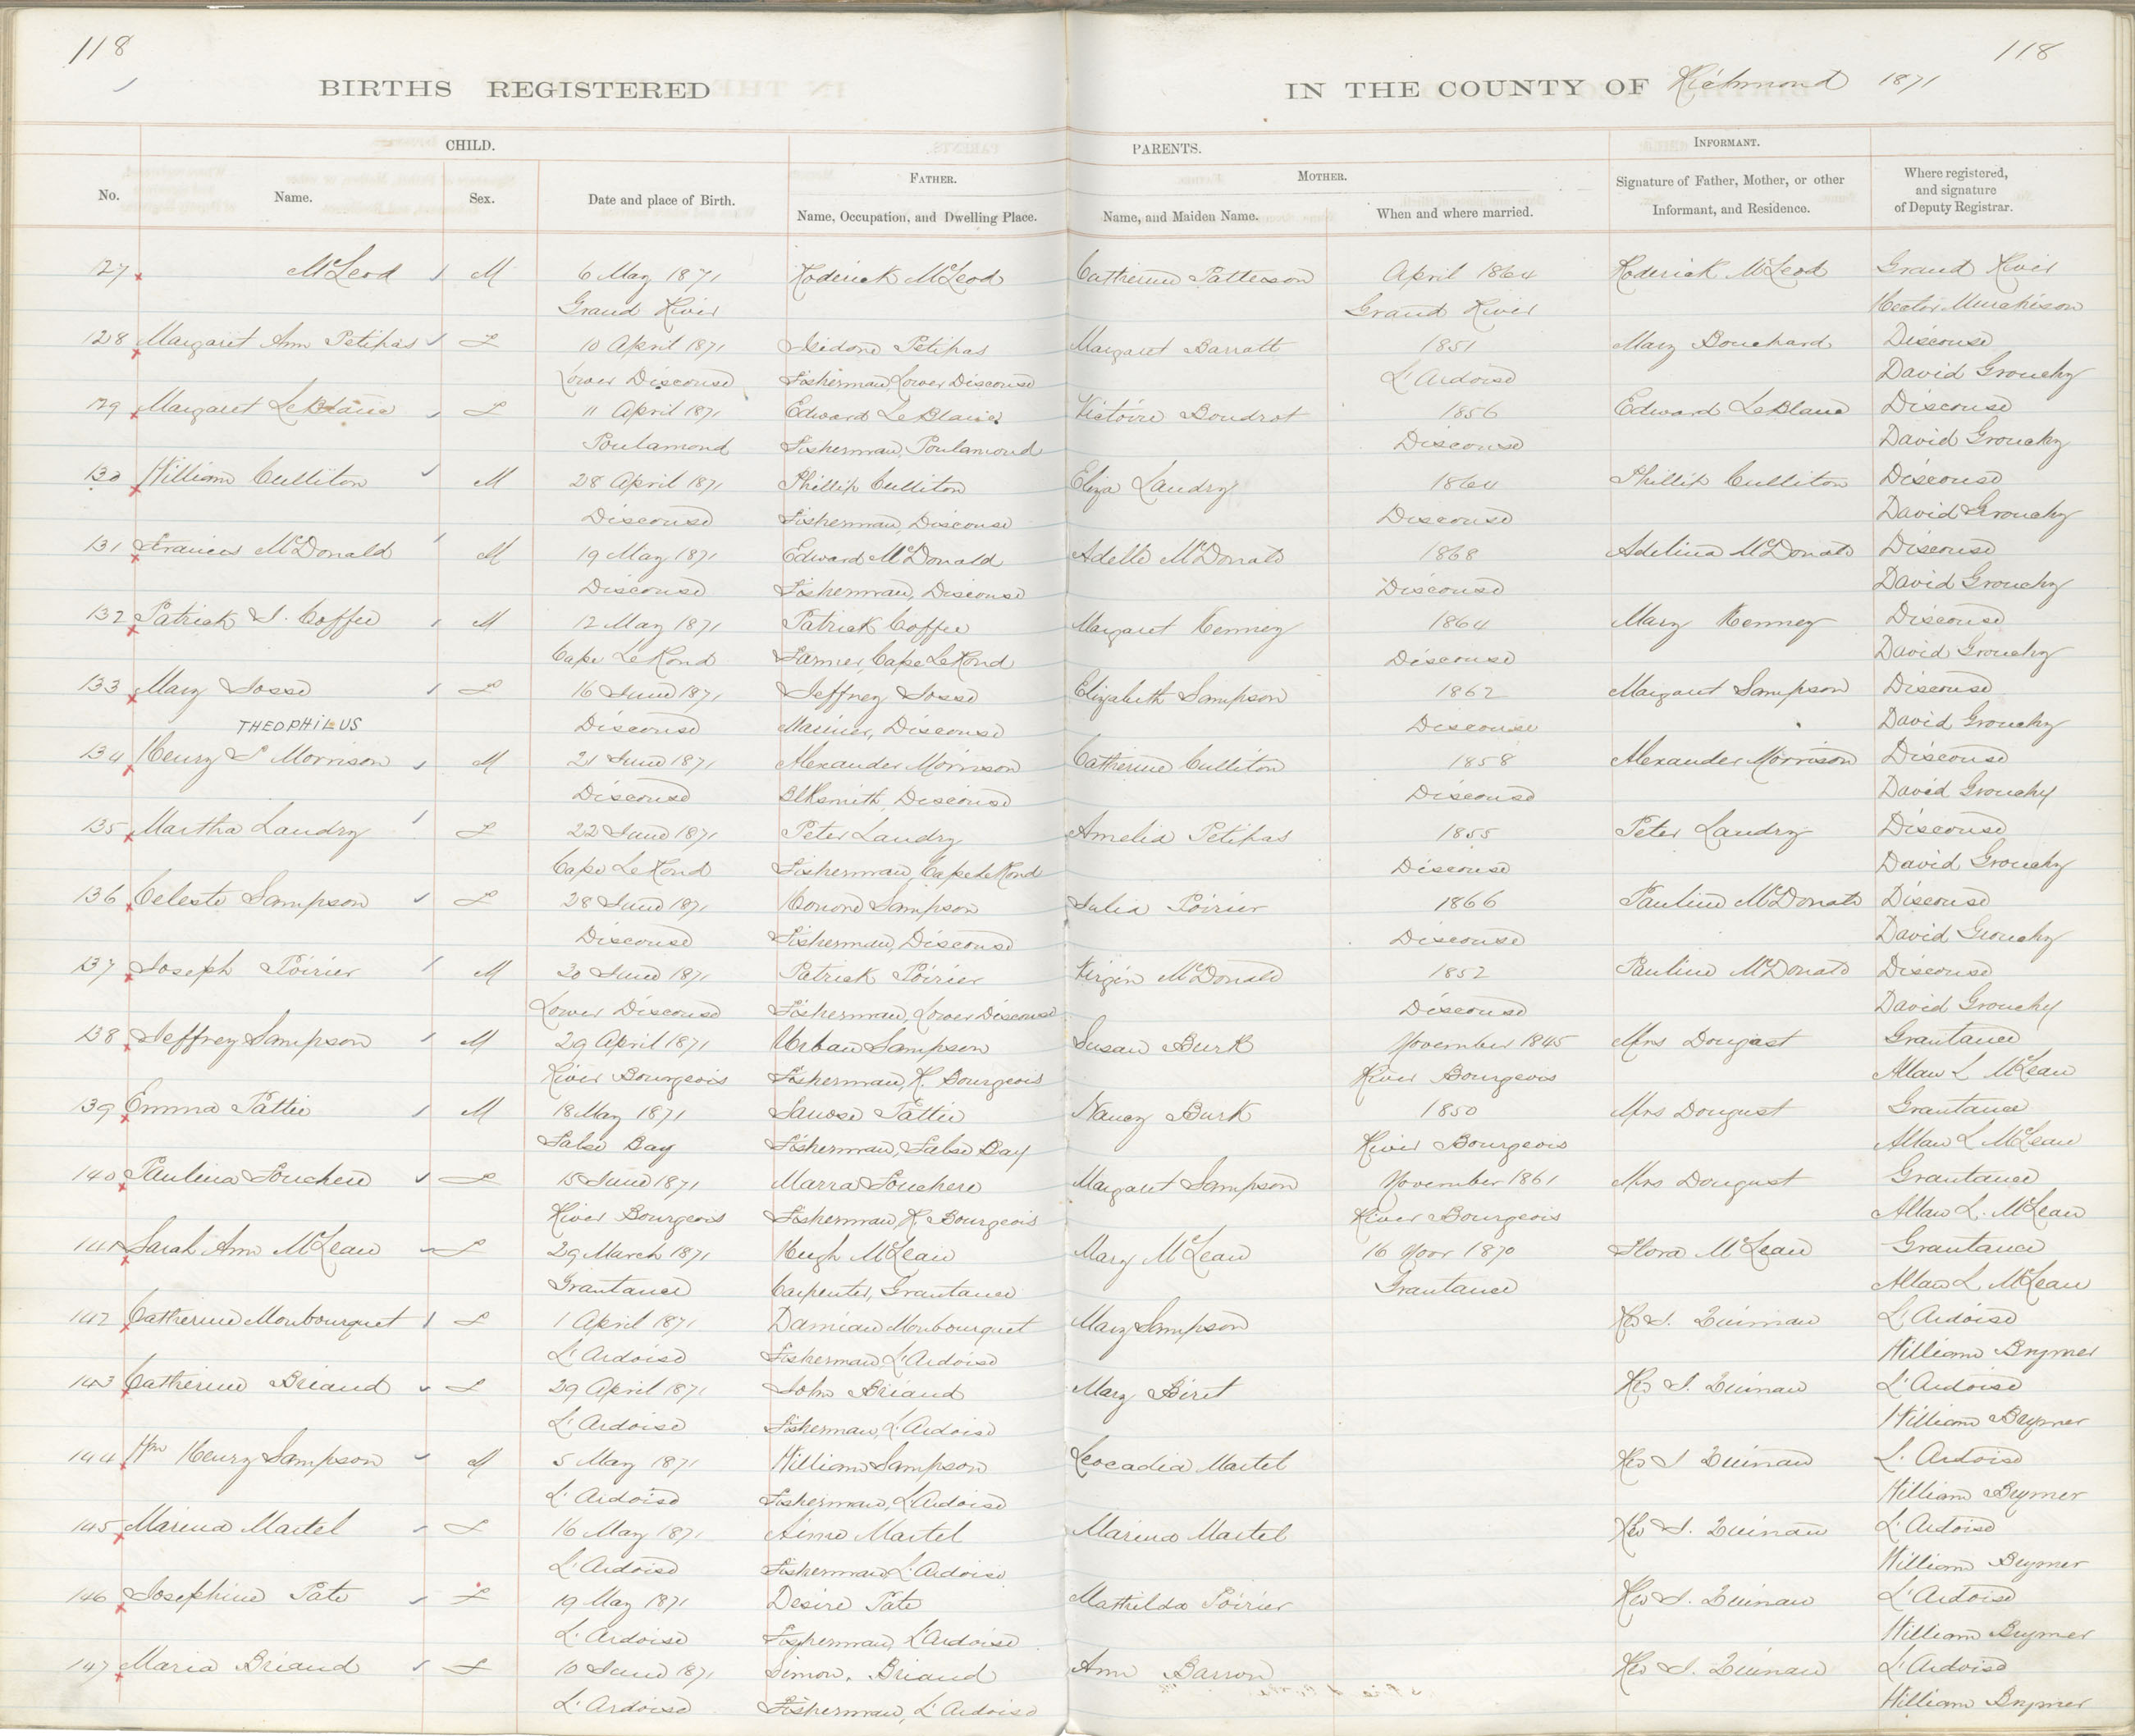 118
118
BIRTHS REGISTERED
IN THE COUNTY OF Richmond 1871
CHILD.
PARENTS.
INFORMANT.
No.
Name.
Sex.
Date and place of Birth.
FATHER.
Name, Occupation, and Dwelling Place.
MOTHER.
Name, and Maiden Name.
When and where married.
Signature of Father, Mother, or other
Informant, and Residence.
Where registered,
and signature
of Deputy Registrar.
127 McLeod M 6 May 1871 Roderick McLeod Catherine Patterson April 1864 Roderick McLeod Grand River
Grand River Grand River Hector Murchison
128 Margaret Ann Petipas F 10 April 1871 Isidore Petipas Margaret Barratt 1851 Mary Bouchard Discouse
Lower Discouse Fisherman, Lower Discouse L'Ardoise David Grouchy
129 Margaret LeBlanc F 11 April 1871 Edward LeBlanc Victoire Boudrot 1856 Edward LeBlanc Discouse
Poulamond Fisherman, Poulamond Discouse David Grouchy
130 William Culliton M 28 April 1871 Phillip Culliton Eliza Landry 1864 Phillip Culliton Discouse
Discouse Fisherman, Discouse Discouse David Grouchy
131 Frances McDonald M 19 May 1871 Edward McDonald Adelle McDonald 1868 Adelina McDonald Discouse
Discouse Fisherman, Discouse Discouse David Grouchy
132 Patrick S. Coffee M 12 May 1871 Patrick Coffee Margaret Kenney 1864 Mary Kenney Discouse
Cape LeRond Farmer, Cape LeRond Discouse David Grouchy
133 Mary Josse F 16 June 1871 Jeffrey Josse Elizabeth Sampson 1862 Margaret Sampson Discouse
Discouse Mariner, Discouse Discouse David Grouchy
THEOPHILUS
134 Henry T Morrison M 21 June 1871 Alexander Morrison Catherine Culliton 1858 Alexander Morrison Discouse
Discouse Blksmith, Discouse Discouse David Grouchy
135 Martha Landry F 22 June 1871 Peter Landry Amelia Petipas 1855 Peter Landry Discouse
Cape LeRond Fisherman, Cape LeRond Discouse David Grouchy
136 Celeste Sampson F 28 June 1871 Honore Sampson Julia Poirier 1866 Pauline McDonald Discouse
Discouse Fisherman, Discouse Discouse David Grouchy
137 Joseph Poirier M 20 June 1871 Patrick Poirier Virgin McDonald 1852 Pauline McDonald Discouse
Lower Discouse Fisherman, Lower Discouse Discouse David Grouchy
138 Jeffrey Sampson M 29 April 1871 Urban Sampson Susan Burk November 1845 Mrs Dougast Grantance
River Bourgeois Fisherman, R. Bourgeois River Bourgeois Allan L McLean
139 Emma Pattie M 18 May 1871 Pattie Nancy Burk 1850 Mrs Dougust Grantance
False Bay Fisherman, False Bay River Bourgeois Allan L McLean
140 Paulina Fouchere F 15 June 1871 Marra Fouchere Margaret Sampson November 1861 Mrs Dougust Grantance
River Bourgeois Fisherman, R. Bourgeois River Bourgeois Allan L. McLean
141 Sarah Ann McLean F 29 March 1871 Hugh McLean Mary McLean 16 Novr 1870 Flora McLean Grantance
Grantance Carpenter, Grantance Grantance Allan L McLean
142 Catherine Monbourquet F 1 April 1871 Damian Monbourquet Mary Sampson Rev J. Quinan L'Ardoise
L'Ardoise Fisherman, L'Ardoise William Brymer
143 Catherine Briand F 29 April 1871 John Briand Mary Biret Rev J. Quinan L'Ardoise
L'Ardoise Fisherman, L'Ardoise William Brymer
144 Wm Henry Sampson M 5 May 1871 William Sampson Leocadia Martel Rev J Quinan L'Ardoise
L'Ardoise Fisherman, L'Ardoise William Brymer
145 Marina Martel F 16 May 1871 Aime Martel Marina Martel Rev J. Quinan L'Ardoise
L'Ardoise Fisherman, L'Ardoise William Brymer
146 Josephine Pate F 19 May 1871 Desire Pate Mathilda Poirier Rev J. Quinan L'Ardoise
L'Ardoise Fisherman, L'Ardoise William Brymer
147 Maria Briand F 10 June 1871 Simon Briand Ann Barron Rev J. Quinan L'Ardoise
L'Ardoise Fisherman, L'Ardoise William Brymer